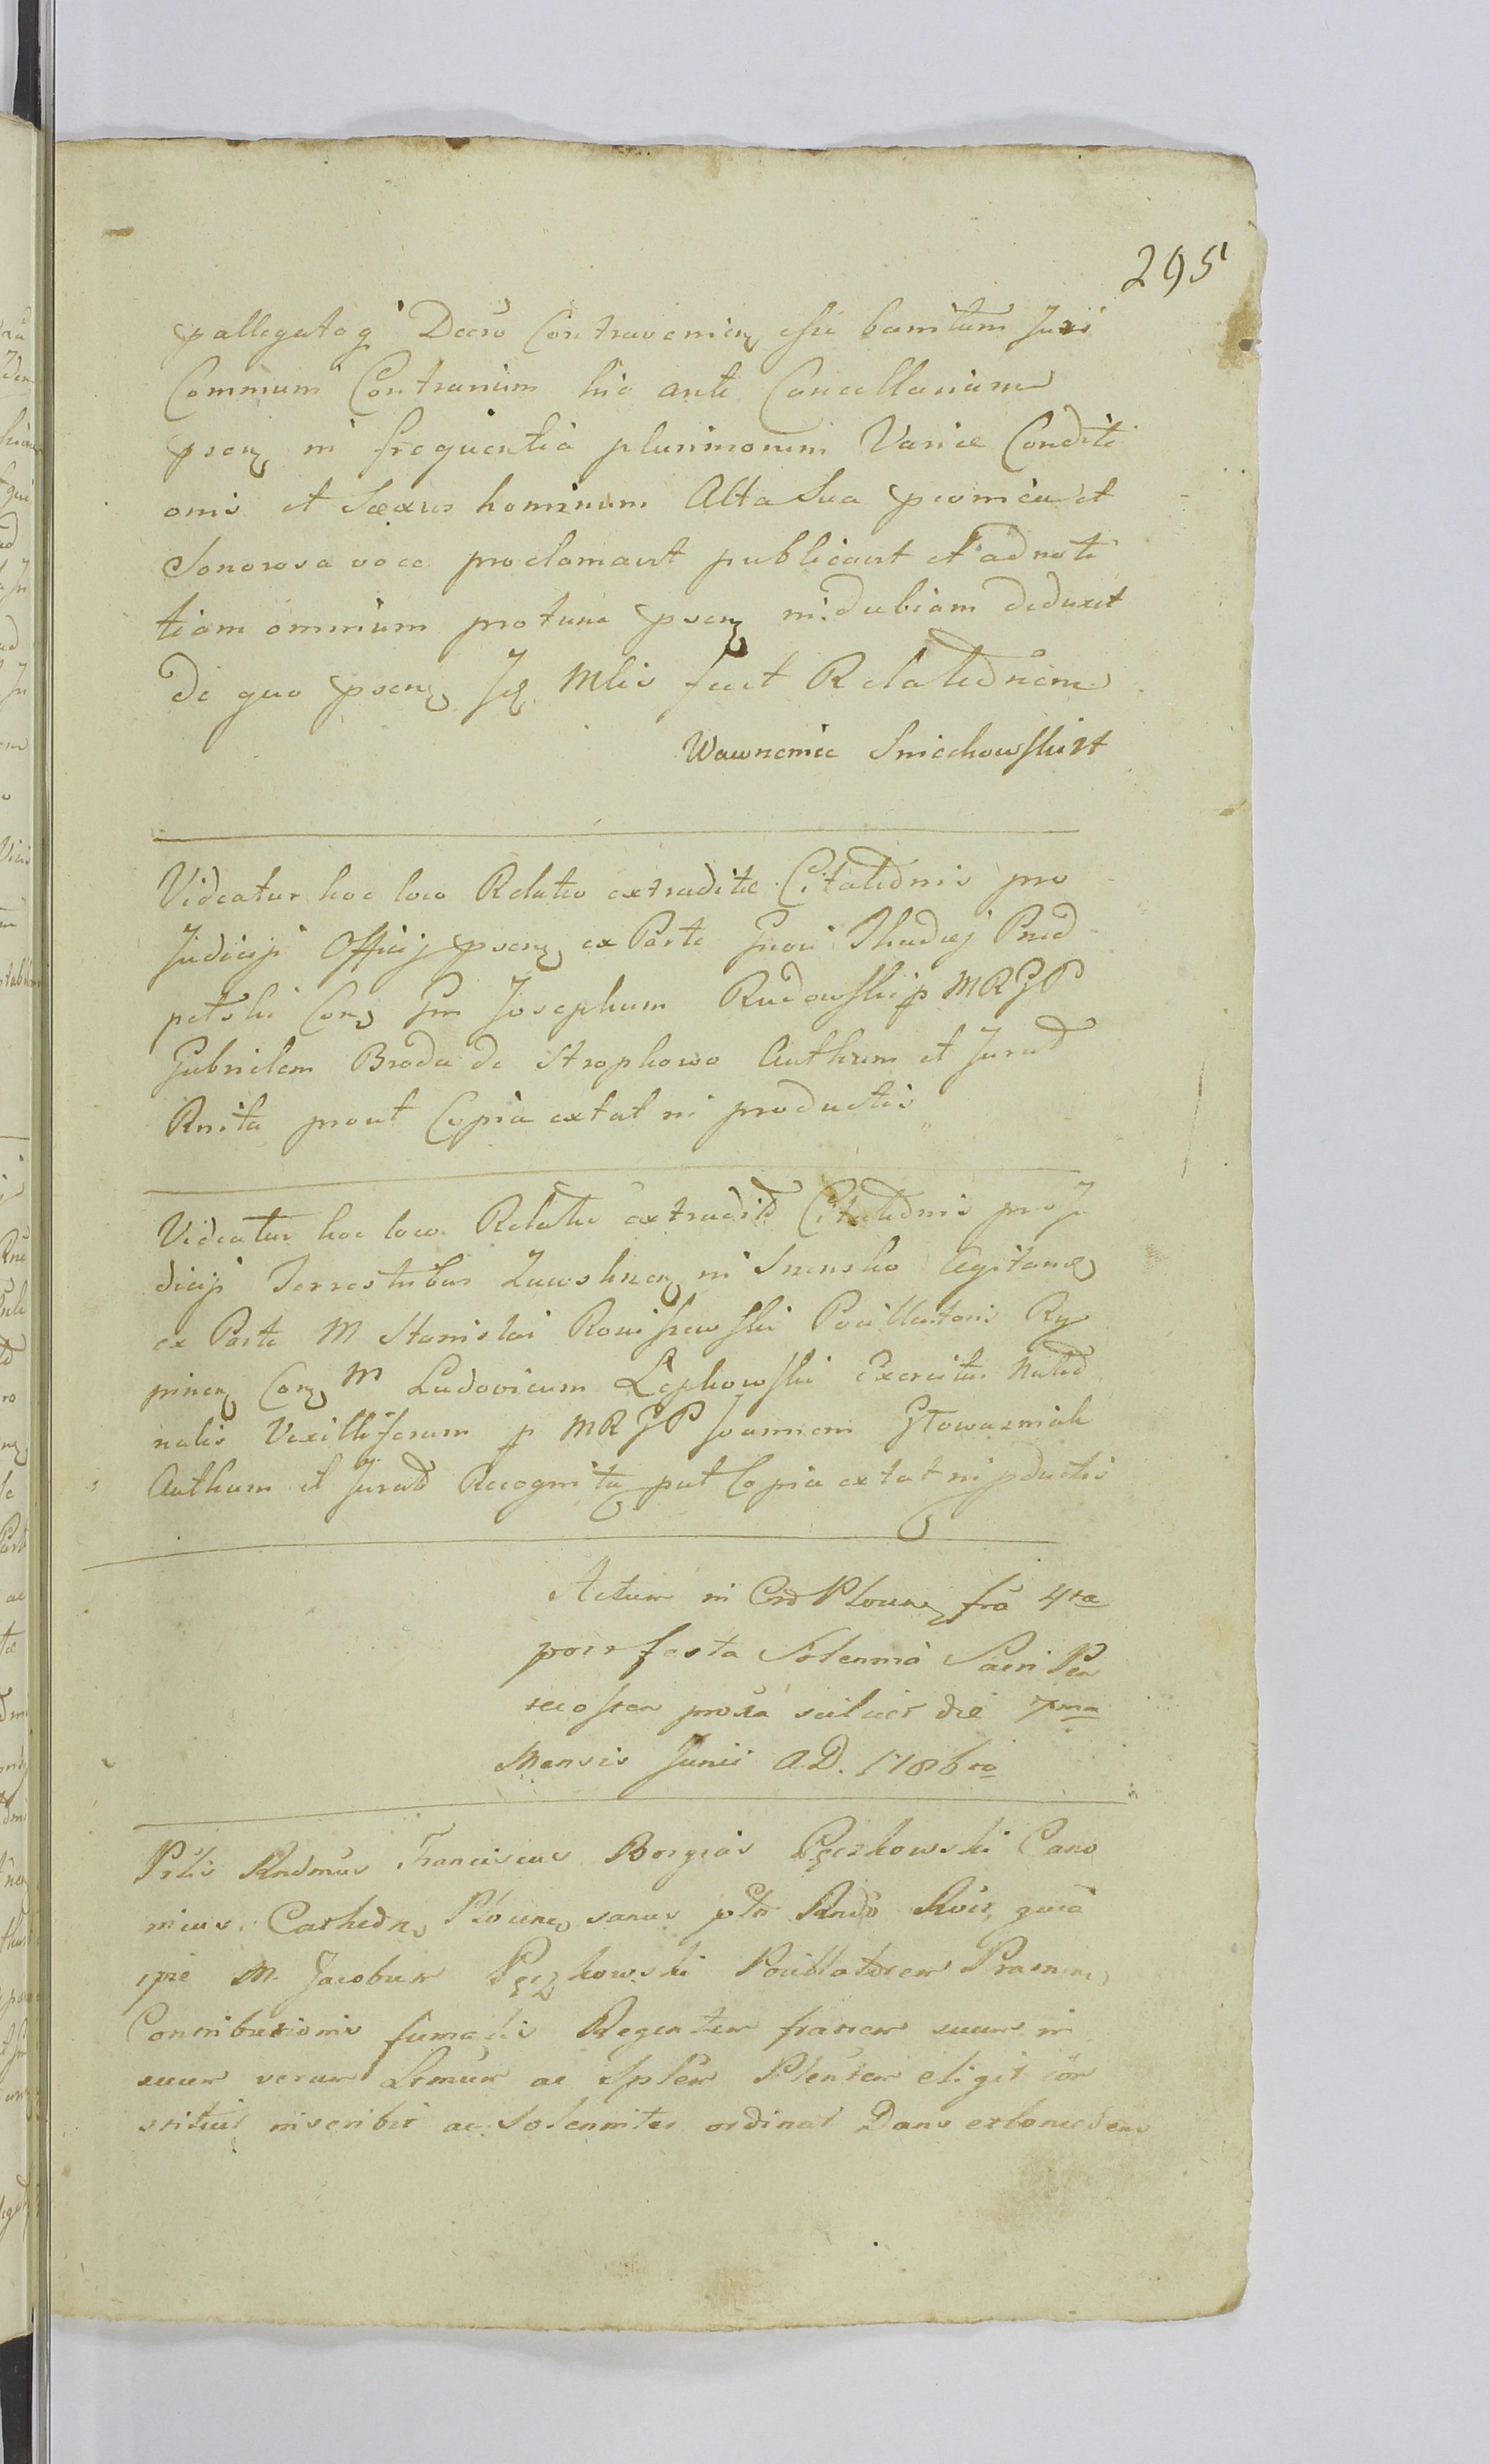 295
pallegatoq Decro Contravenien esse banitum Juri
Communi Contrarium hic ante Cancellariam
psen in frequentia plurimorum Variae Conditi
onis et Sexus hominum Alta Sua et
Sonorosa voce proclamavit publicavit et ad noti
tiam omnium pro tunc psen indubiam deduxit
De quo psen Mlis fecit Relationem
Wawrzeniec Sniechowski
Videatur hoc loco Relatio extraditae Citationis pro
Judicijs Officij psen ex Parte Gnosi Thadaej Prud
potski Con Gm Josephum Rudowski p MRGP
Gabrielem Broda de Stropkowo Authum et Jurat
Rnita prout Copia extat in productis
Videatur hoc loco Relatio extradit Citationis pro Ju
dicijs Terrestribus Zawskrzen in Srensko Agitan
ex Parte M Stanislai Roniszewski Pocillatoris Ry
pinen Con M Ludovicum Lepkowski Exercitus Natio
nalis Vexilliferum p MRGP Joannem Głowazniak
Authum et Jurat Recognita put Copia extat in pductis
Actum in Cro Plocen fra 4ta
post festa Solennia Sacri Pen
tecosten proxa scilicet die 7ma
Mensis Junii A.D. 1786to
Prlis Rndmus Franciscus Borgias Pęczkowski Cano
nicus Cathedr Plocen sanus ptr Rndo Rcit quia
ipse M. Jacobum Pęczkowski Pocillatorem Prasnn
Contributionis fumalis Regentem fratrem suum in
suum verum Ltmum ac Splem Plentem eligit con
stituit inscribit ac Solenniter ordinat Dans et concedens